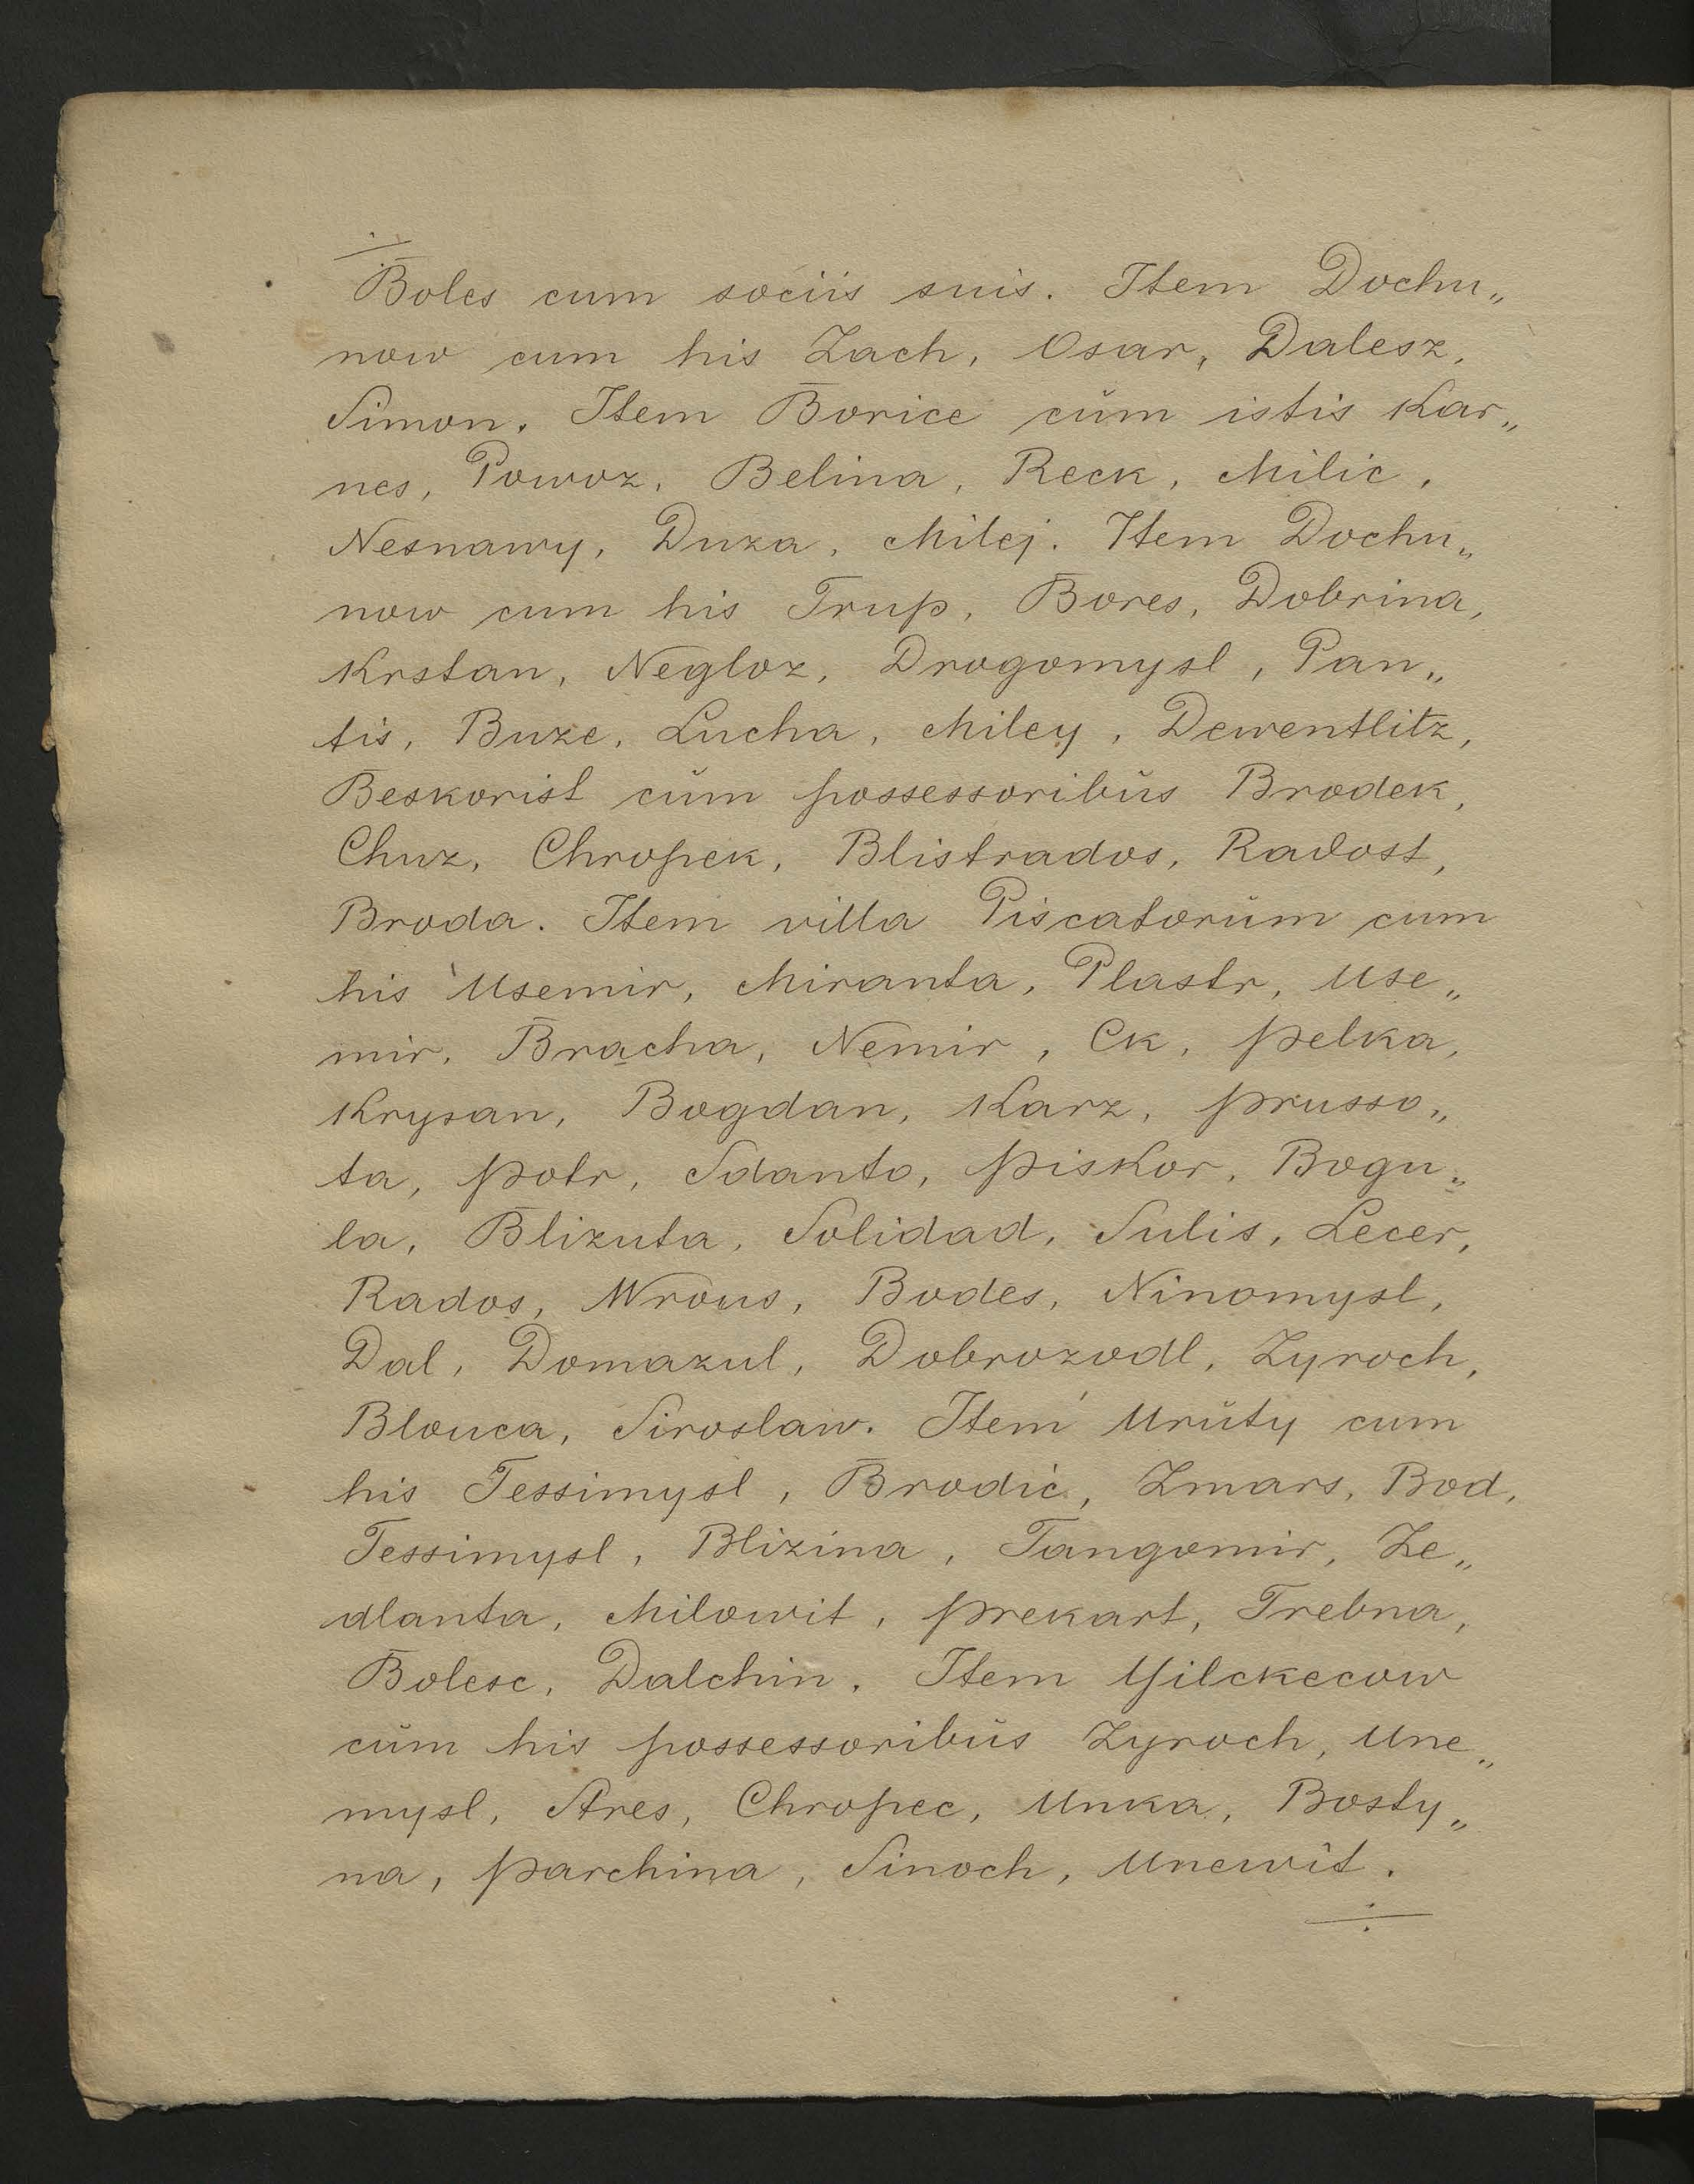 Boles cum sociis suis. Item Dochu„
now cum his Zach, Osar, Dalesz,
Simon. Item Borice cŭm istis Kar„
nes, Powoz, Belina, Reck, Milic,
Nesnawy, Duza, Milej. Item Dochu„
now cum his Trup, Bores, Dobrina,
Krstan, Negloz, Drogomysl, Pan„
tis, Buze, Lucha, Miley, Dewentlitz,
Beskorist cŭm possessoribŭs Brodek,
Chuz, Chropek, Blistrados, Radost,
Broda. Item villa Piscatorŭm cum
his Usemir, Miranta, Plastr, Use„
mir, Bracha, Nemir, Ck, Pelka,
Krysan, Bogdan, Karz, Prusso„
ta, Potr, Sdanto, Piskor, Bogu„
la, Blizuta, Solidad, Sulis, Lecer,
Rados, Wrous, Bodes, Ninomysl,
Dal, Domazul, Dobrozodl, Zyroch,
Blouca, Siroslaw. Item Urŭty cum
his Tessimysl, Brodić, Zmars, Bod,
Tessimysl, Blizina, Tangomir, Ze„
dlanta, Milowit, Prekart, Trebna,
Bolesc, Dalchin. Item Yilckecow
cŭm his possessoribŭs Zyroch, Une„
mysl, Ares, Chropec, Unka, Bosty„
na, Parchina, Sinoch, Unewit.